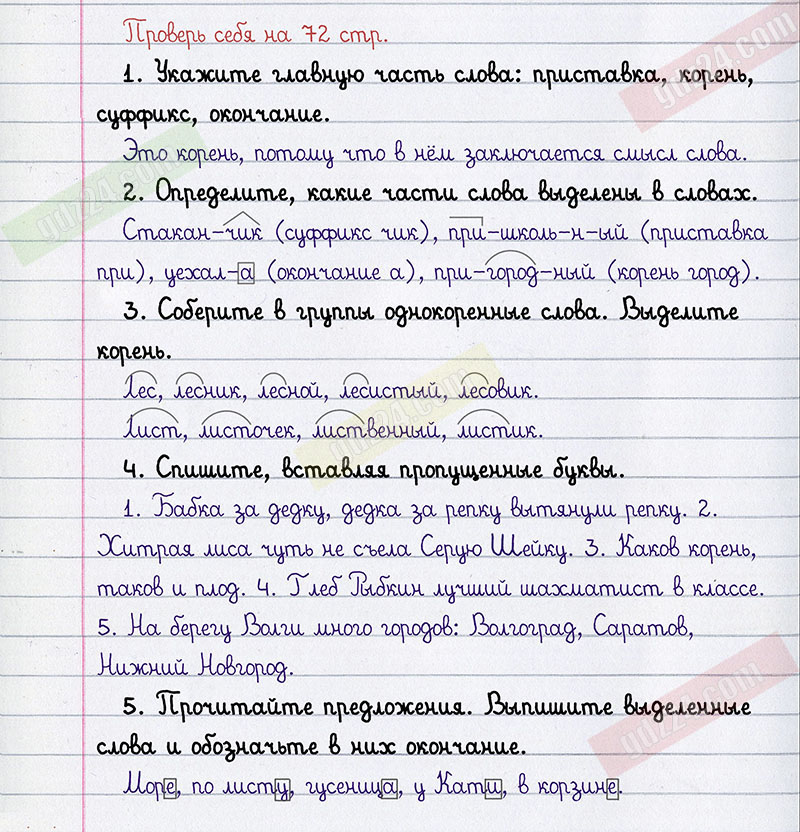 Проверь себя на 72 стр.
1. Укажите главную часть слова: приставка, корень,
суффикс, окончание.
Это корень, потому что в нём заключается смысл слова.
2. Определите, какие части слова выделены в словах.
Стакан-чик (суффикс чик), при-школь-н-ый (приставка
при), уехал-а (окончание а), при-город-ный (корень город).
3. Соберите в группы однокоренные слова. Выделите
корень.
Лес, лесник, лесной, лесистый, лесовик.
Лист, листочек, лиственный, листик.
4. Спишите, вставляя пропущенные буквы.
1. Бабка за дедку, дедка за репку вытянули репку. 2.
Хитрая лиса чуть не съела Серую Шейку. 3. Каков корень,
таков и плод. 4. Глеб Рыбкин лучший шахматист в классе.
5. На берегу Волги много городов: Волгоград, Саратов,
Нижний Новгород.
5. Прочитайте предложения. Выпишите выделенные
слова и обозначьте в них окончание.
Море, по листу, гусеница, у Кати, в корзине.
gdz24.com
gdz24.com
gdz24.com
gdz24.com